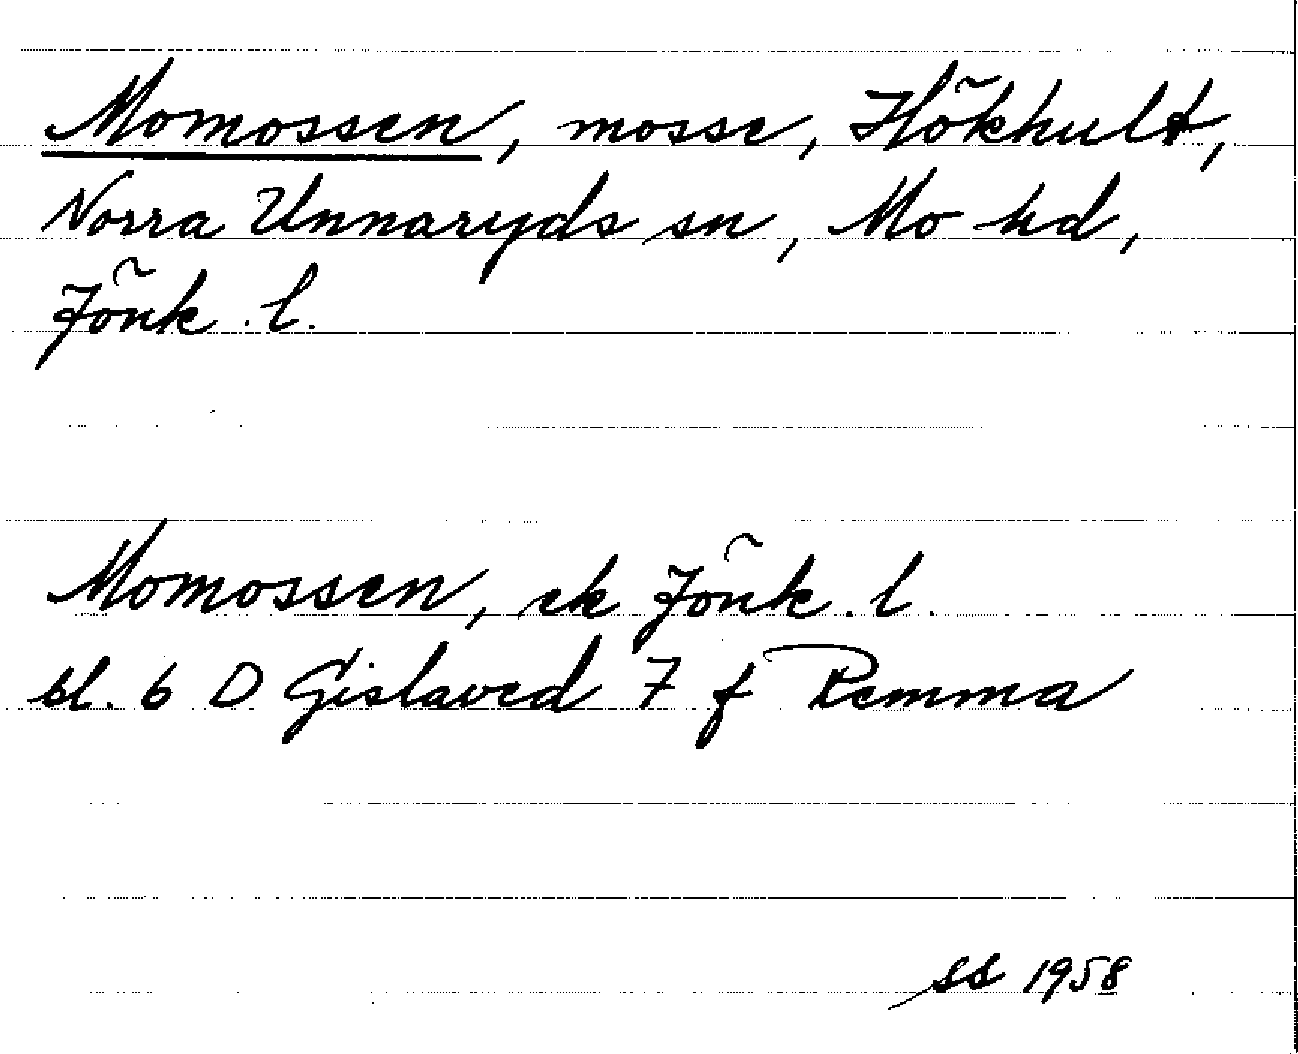 Momossen, mosse, Hökhult,
Norra Unnaryds sn, Mo hd,
Jönk. l.
Momossen, ek Jönk. l.
bl. 6 D Gislaved 7 f Remma
SS 1958